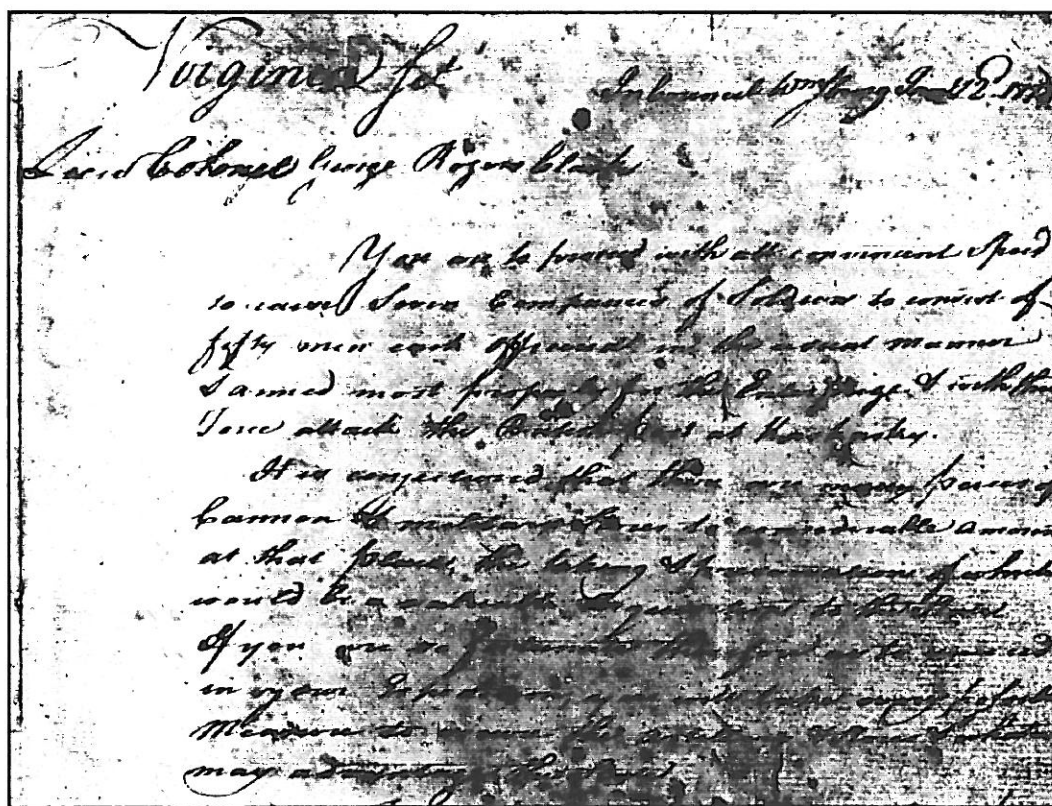 Virginia Sct.
In Council Wmsburg Jan 2d. 1778
Lieut Colonel George Rogers Clark
You are to proceed with all convenient Speed
to raise Seven Companies of Soldiers to consist of
fifty men each officered in the usual manner
& armed most properly for the Enterprize, & with this
Force attack the British post at Kaskasky.
It is conjectured that there are many pieces of
Cannon & military Stores to considerable amount
at that place, the taking & preservation of which
would be a valuable acquisition to the State
If you are so fortunate therefore as to succeed
in your Expedition, you will take every possible
Measure to secure the artillery & Stores & whatever
may advantage the State